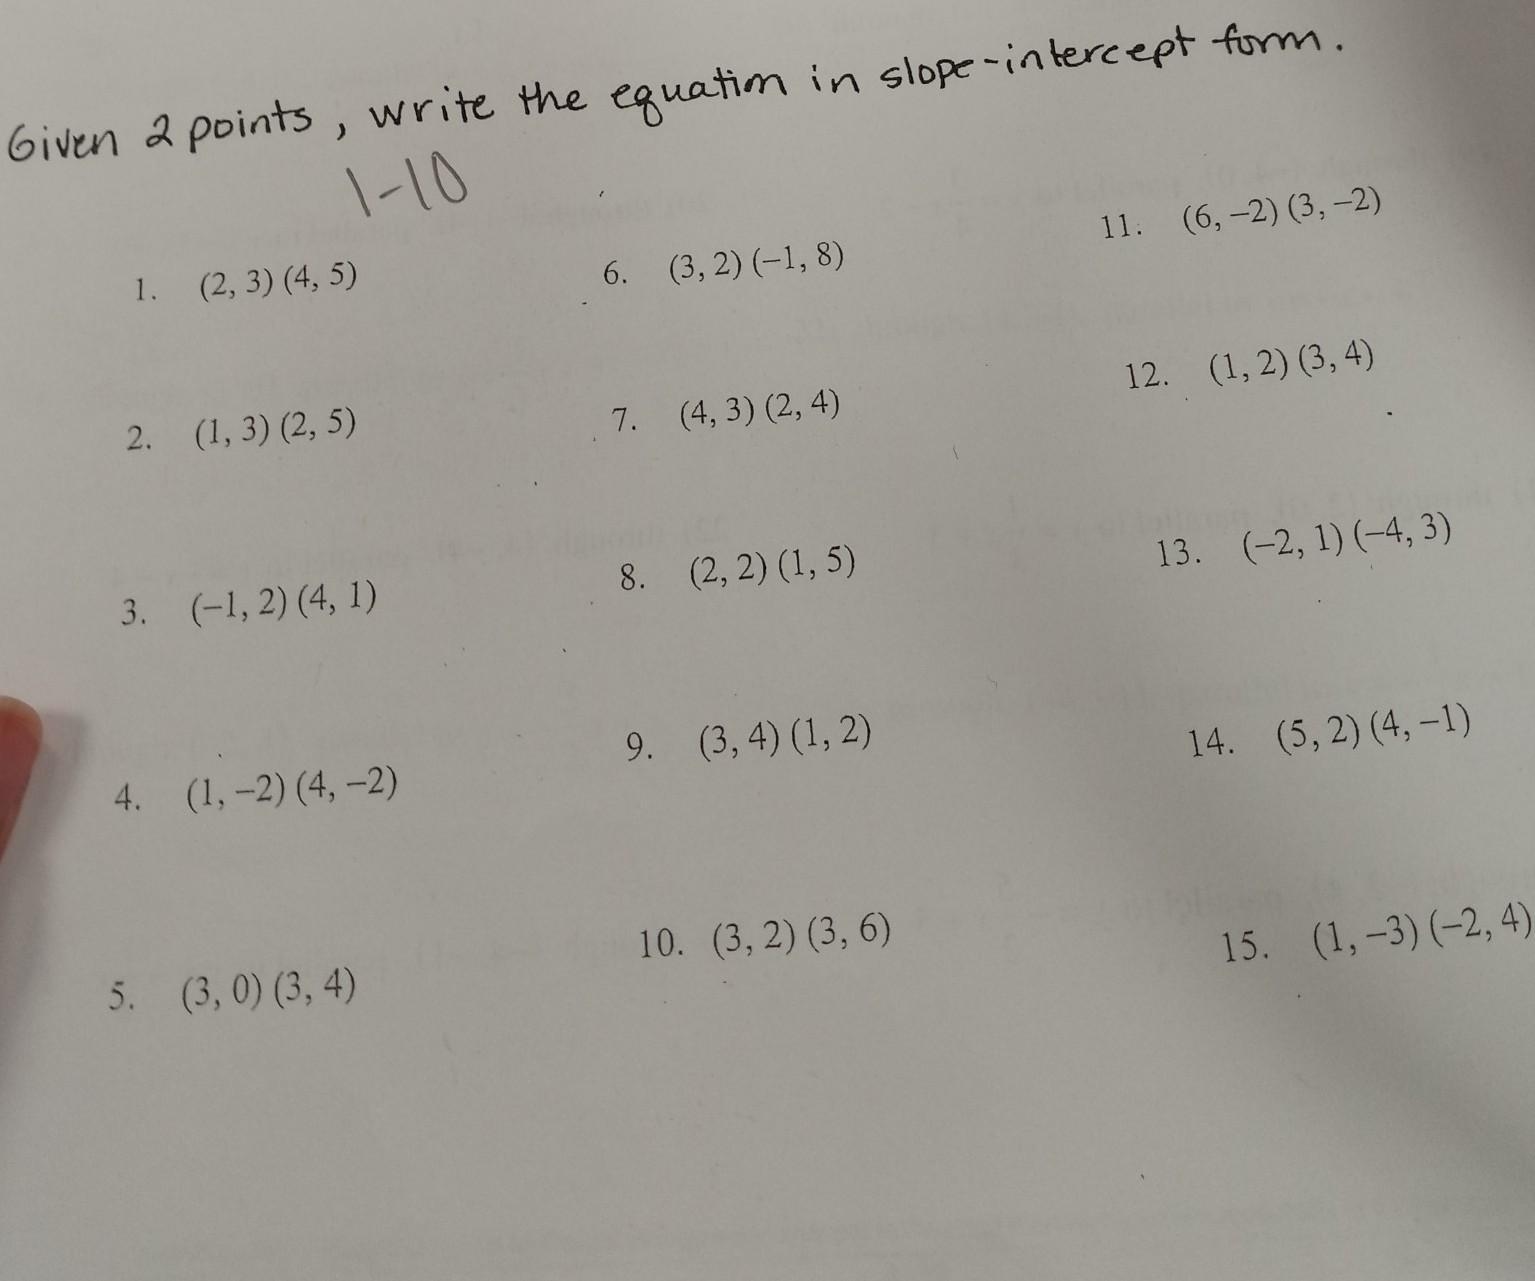 Given 2 points, write the equation in slope-intercept form.
1-10
1. (2, 3) (4, 5)
2. (1, 3) (2, 5)
3. (−1, 2) (4, 1)
4. (1, −2) (4, −2)
5. (3, 0) (3, 4)
6. (3, 2) (−1, 8)
7. (4, 3) (2, 4)
8. (2, 2) (1, 5)
9. (3, 4) (1, 2)
10. (3, 2) (3, 6)
11. (6, −2) (3, −2)
12. (1, 2) (3, 4)
13. (−2, 1) (−4, 3)
14. (5, 2) (4, −1)
15. (1, −3) (−2, 4)